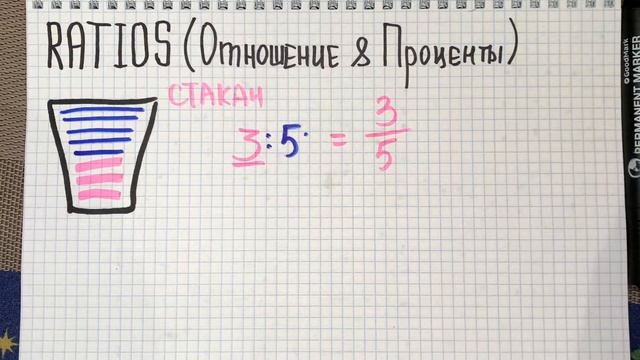 RATIOS (Отношение & Проценты)
СТАКАН
3:5 = 3/5
GoodMark
PERMANENT MARKER